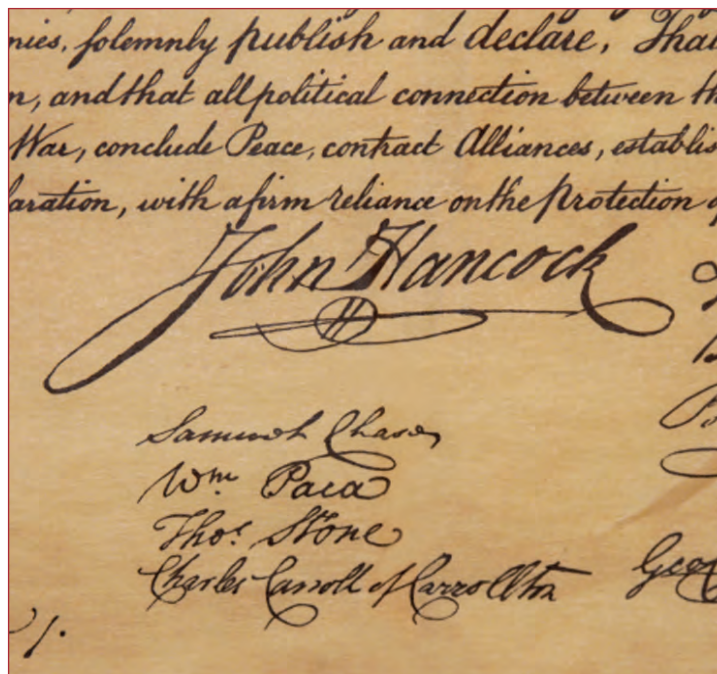 nies, solemnly publish and declare, That
n, and that all political connection between th
War, conclude Peace, contract Alliances, establis
laration, with a firm reliance on the protection o
John Hancock
Samuel Chase
Wm. Paca
Thos. Stone
Charles Carroll of Carrollton
Geo